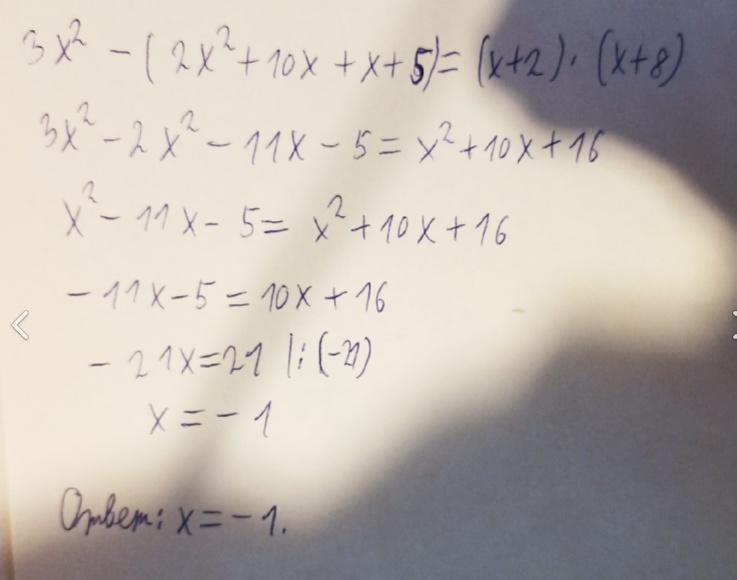 3x² - (2x² + 10x + x + 5) = (x+2) · (x+8)
3x² - 2x² - 11x - 5 = x² + 10x + 16
x² - 11x - 5 = x² + 10x + 16
- 11x - 5 = 10x + 16
- 21x = 21 |: (-21)
x = - 1
Ответ: x = - 1.